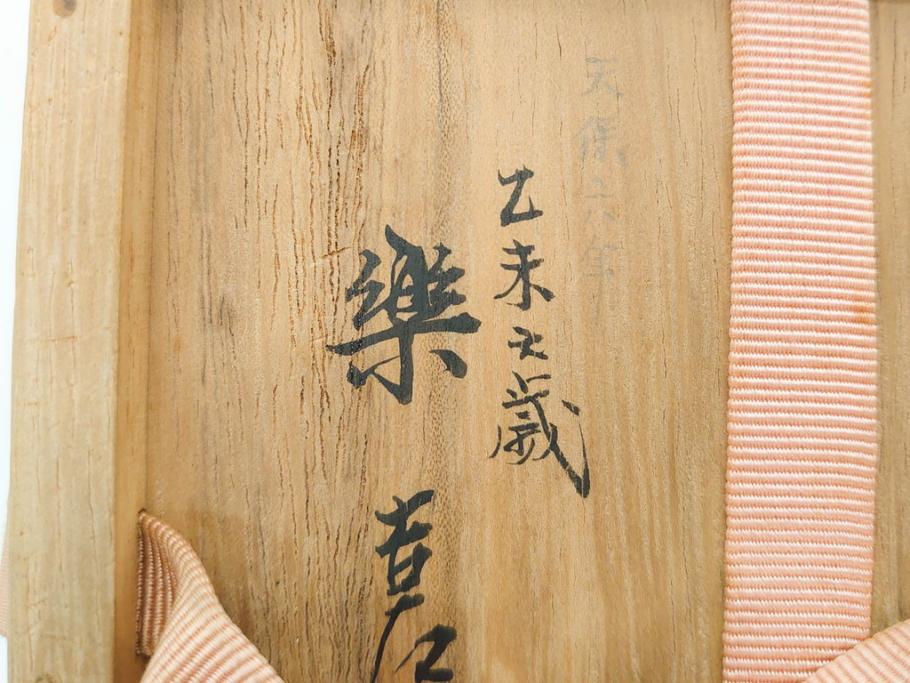 天保六年
乙未之歳
樂吉左